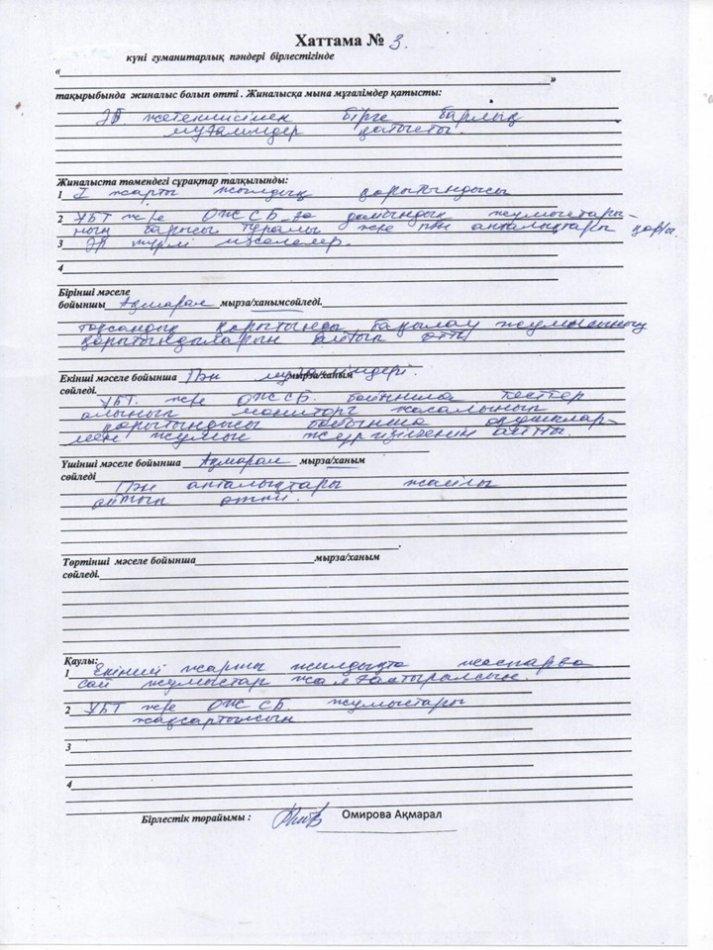 Хаттама № 3.
күні гуманитарлық пәндері бірлестігінде
«
»
тақырыбында жиналыс болып өтті . Жиналысқа мына мұғалімдер қатысты:
ӘБ жетекшісімен бірге барлық
мұғалімдер қатысты.
Жиналыста төмендегі сұрақтар талқыланды:
1 I жарты жылдық қорытындысы
2 ҰБТ және ОЖСБ-ға дайындық жұмыстары-
ның барысы туралы және пән апталықтары
3 Әр түрлі мәселелер.
4
Бірінші мәселе
бойыншы Ақмарал мырза/ханымсөйледі.
тоқсандық қорытынды бақылау жұмысының
қорытындыларын айтып өтті
Екінші мәселе бойынша Пән мұғалімдері. мырза/ханым
сөйледі.
ҰБТ және ОЖСБ бойынша тесттер
алынып мониторг жасалынып
қорытындысы бойынша оқушылар-
мен жұмыс жүргізілгенін айтты
Үшінші мәселе бойынша Ақмарал мырза/ханым
сөйледі
Пән апталықтары жайлы
айтып өткен.
Төртінші мәселе бойынша мырза/ханым
сөйледі.
Қаулы:
1 Екінші жарты жылдықта жоспарға
сай жұмыстар жалғастыралсын.
2 ҰБТ және ОЖСБ жұмыстары
жақсартылсын
3
4
Бірлестік торайымы : Омирова Ақмарал